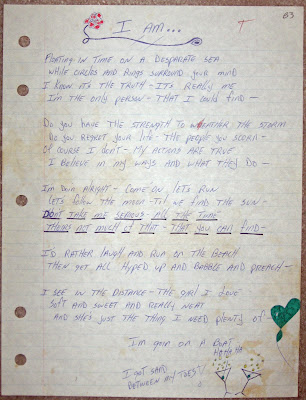 I AM...
T
Floating in time on a desperate sea
While circles and rings surround your mind
I know it's the truth - it's really me
I'm the only person - that I could find -
Do you have the strength to weather the storm
Do you regret your life - the people you scorn -
Of course I don't - my actions are true
I believe in my ways and what they do -
I'm down alright - come on let's run
Let's follow the moon til we find the sun -
Don't take me serious - all the time
Theirs not much of that - that you can find -
I'd rather laugh and run on the beach
Then get all hyped up and babble and preach -
I see in the distance - the girl I love
Soft and sweet and really neat
And she's just the thing I need plenty of -
I'm gone on a boat
HA HA HA
I got sand
between my toes!